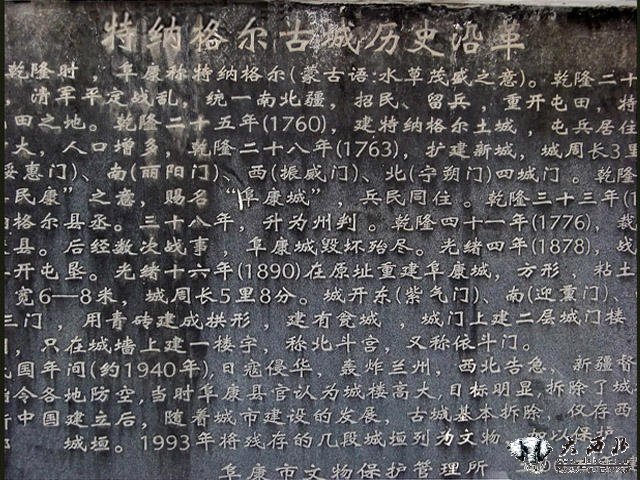 特纳格尔古城历史沿革
乾隆时，阜康称特纳格尔(蒙古语:水草茂盛之意)。乾隆二十
，清军平定战乱，统一南北疆，招民、留兵，重开屯田，特
田之地。乾隆二十五年(1760)，建特纳格尔土城，屯兵居住
大，人口增多，乾隆二十八年(1763)，扩建新城，城周长3里
绥惠门)、南(丽阳门)、西(振威门)、北(宁朔门)四城门。乾隆
民康”之意，赐名“阜康城”，兵民同住。乾隆三十三年(1
纳格尔县丞。三十八年，升为州判。乾隆四十一年(1776)，裁
县。后经数次战事，阜康城毁坏殆尽。光绪四年(1878)，战
开屯垦。光绪十六年(1890)在原址重建阜康城，方形，粘土
宽6—8米，城周长5里8分。城开东(紫气门)、南(迎薰门)、
三门，用青砖建成拱形，建有瓮城，城门上建二层城门楼
，只在城墙上建一楼宇，称北斗宫，又称依斗门。
国年间(约1940年)，日寇侵华，轰炸兰州，西北告急、新疆督
令各地防空，当时阜康县官认为城楼高大，目标明显，拆除了城
中国建立后，随着城市建设的发展，古城基本拆除，仅存西
城垣。1993年将残存的几段城垣列为文物，加以保护
阜康市文物保护管理所